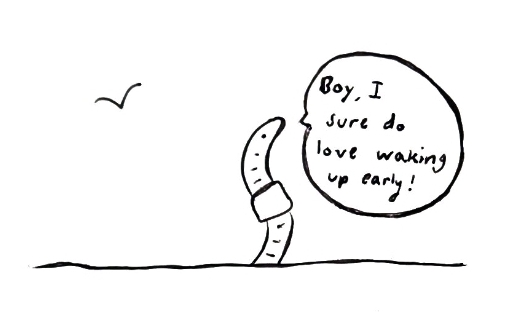 Boy, I
sure do
love waking
up early!